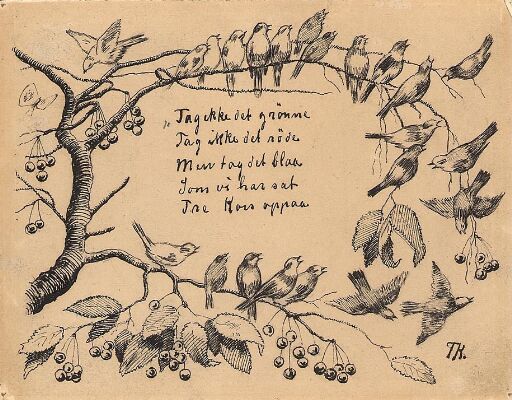 „Tag ikke det grönne
Tag ikke det röde
Men tag det blaa
Som vi har sat
Tre Kors oppaa
TK.